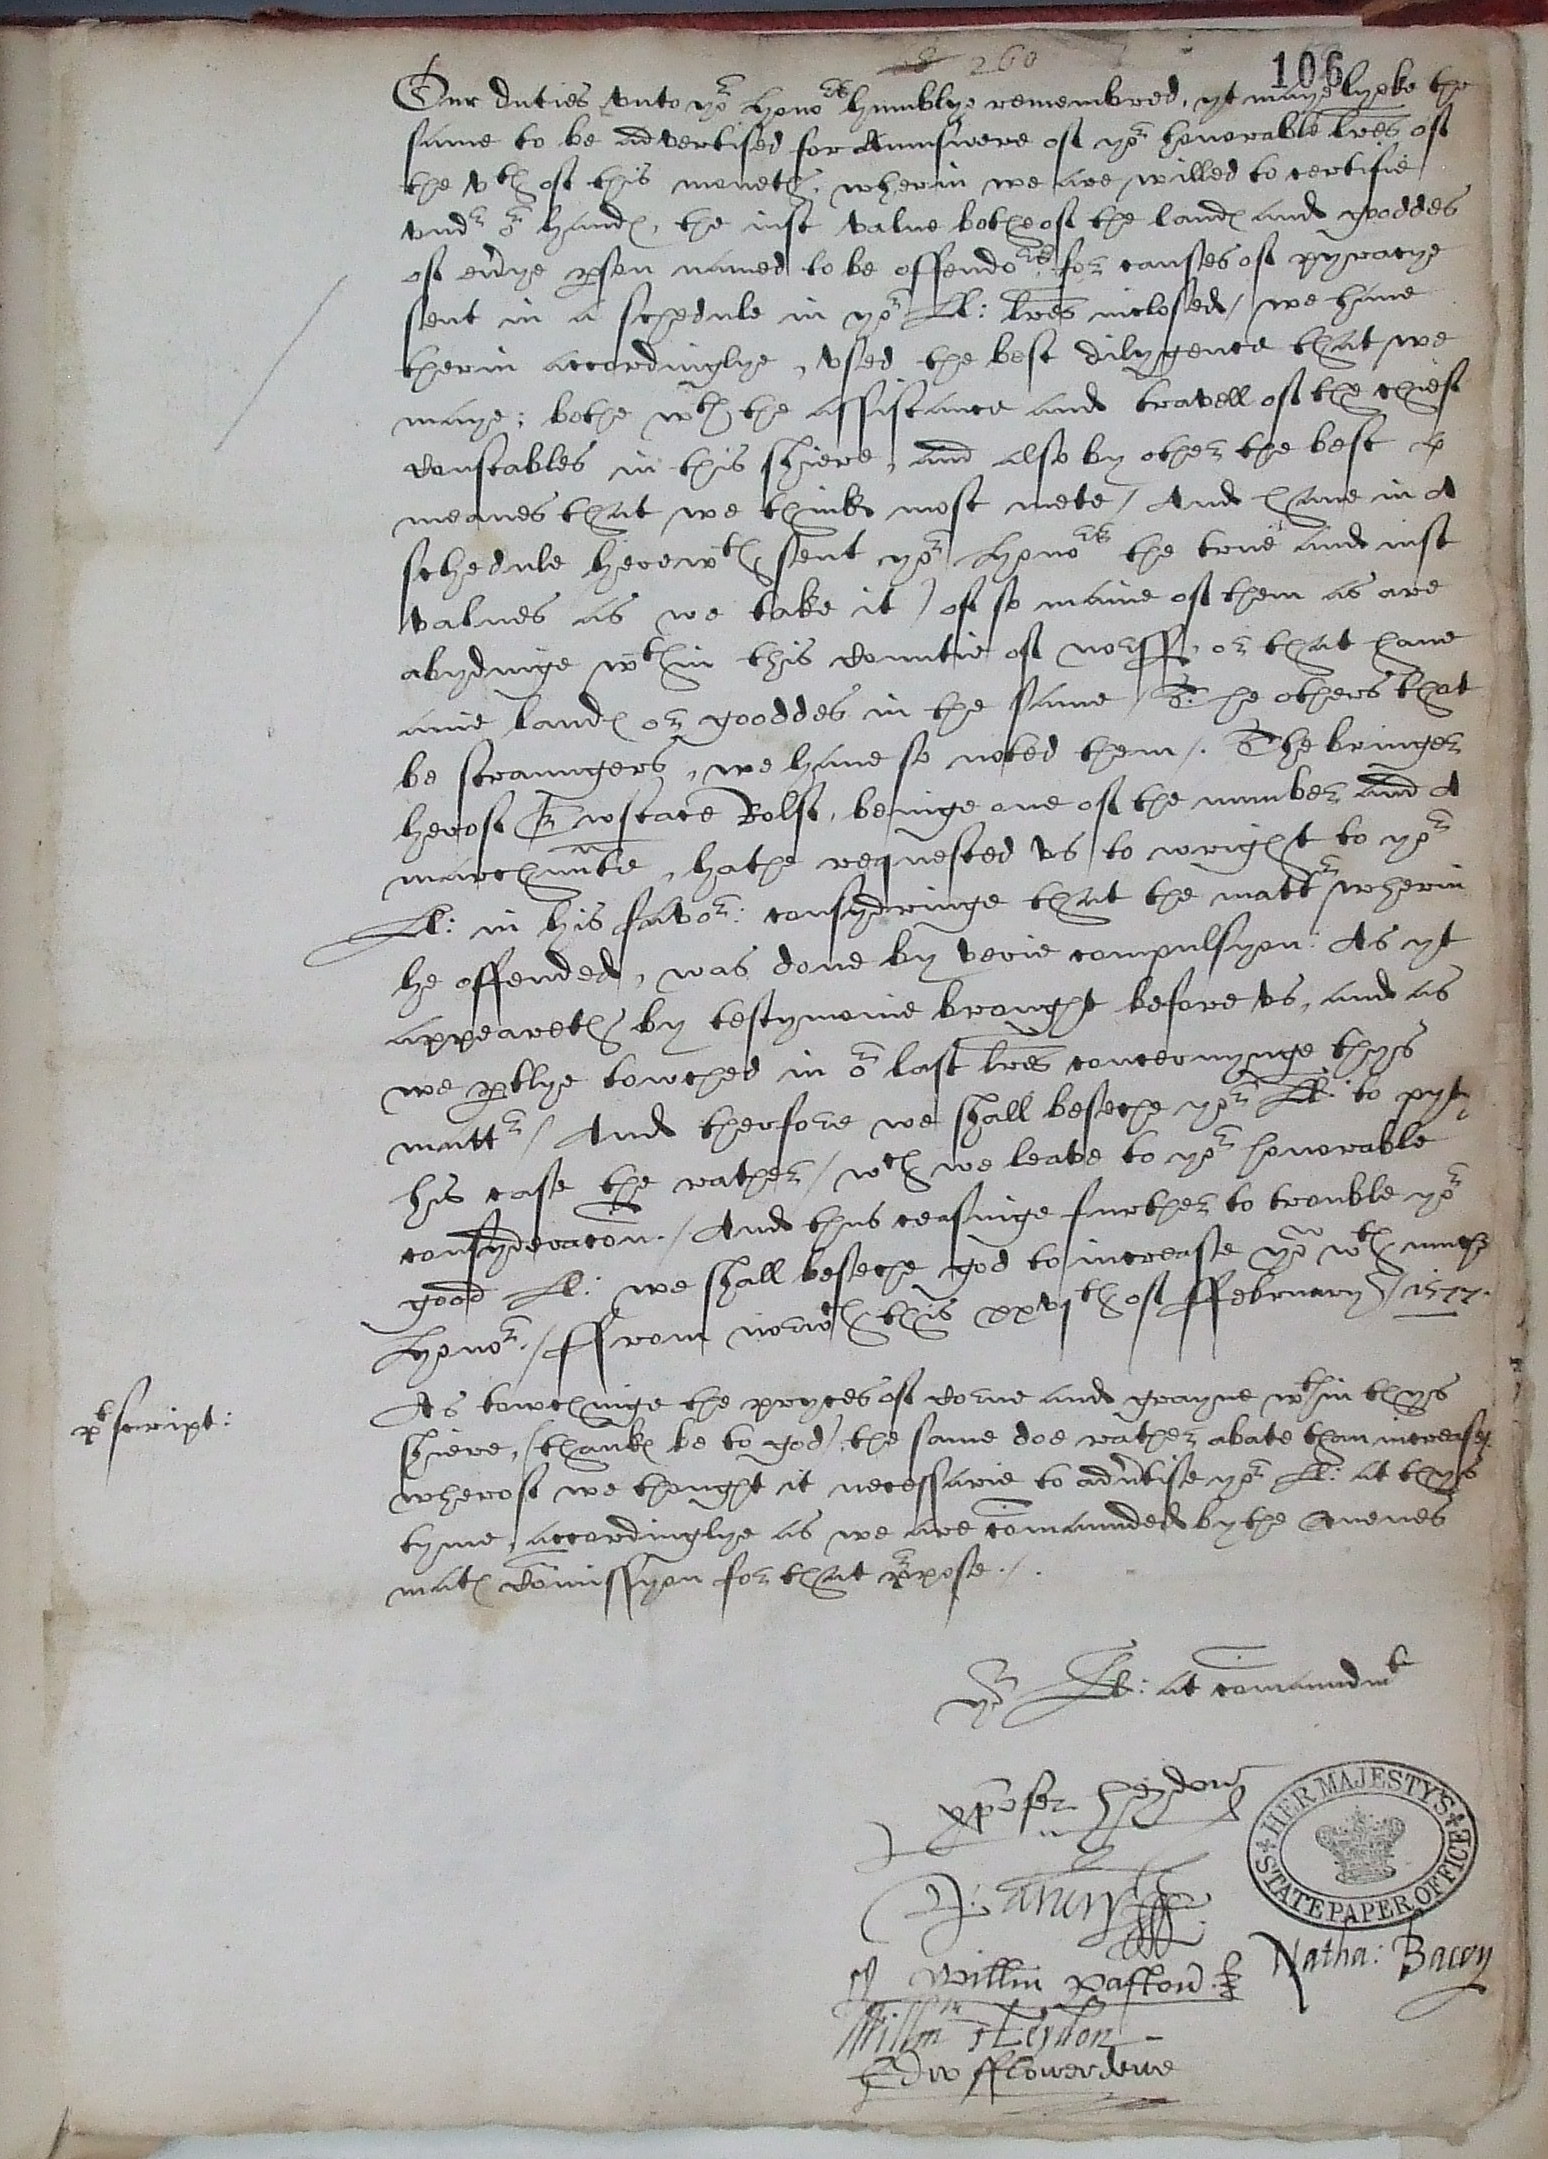 260
106
Our duties vnto yor honors humblye remembred, yt maye lyeke the
same to be advertised for Aunswere of yor honorable lres of
the vth of this moneth, wherin we are willed to certifie
vndr or hand, the iust value bothe of the land and gooddes
of eũye pson named to be offendors for causes of pyracye
sent in a schedule in yor Ll: lres inclosed / we haue
therin accordinglye, vsed the best dilygence that we
maye; bothe wth the assistance and travell of the chief
Constables in this shiere, and also by other the best
meanes that we think most mete / And haue in A
schedule herewth sent yor honors the true and iust
values as we take it / of so manie of them as are
abydinge wthin this Countie of norff, or that haue
anie land or gooddes in the same / The others that
be straungers, we haue so noted them /. The bringer
herof Ewstace Rolf, beinge one of the number and A
marchunte, hathe requested vs to wright to yor
Ll: in his favor: consyderinge that the mattr wherin
he offended, was done by verie compulsyon: As yt
appeareth by testymonie brought before vs, and as
we ptlye towched in or last lres concernynge thys
mattr / And therfore we shall beseche yor Ll: to pyty
his case the rather / wch we leave to yor honorable
consyderacon. / And thus ceasinge further to trouble yor
good Ll: we shall beseche god to increase yor wth muche
honor. / ffrom norwch this xxvjth of ffebruary / 1577.
pt script:
As towchinge the pryces of Corne and grayne wthin thys
shiere, (thank be to god) the same doe rather abate than increase,
wherof we thought it necessarie to adũtise yor Ll: at thys
tyme, accordinglye as we are comaunded by the Quenes
mat Comissyon for that prpose. / .
yor Ll: at comaundmt
xpofer heydon
Willm paston
Natha: Bacon
Willm Heydon
Edw fflowerdewe
HER MAJESTY'S
STATE PAPER OFFICE